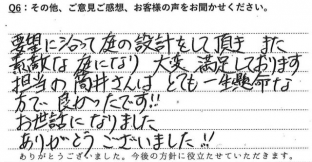 Q6：その他、ご意見ご感想、お客様の声をお聞かせください。
要望にそって庭の設計をして頂き また
素敵な庭になり 大変 満足しております
担当の筒井さんは とても一生懸命な
方で 良かったです!!
お世話になりました
ありがとうございました!!
ありがとうございました。今後の方針に役立たせていただきます。